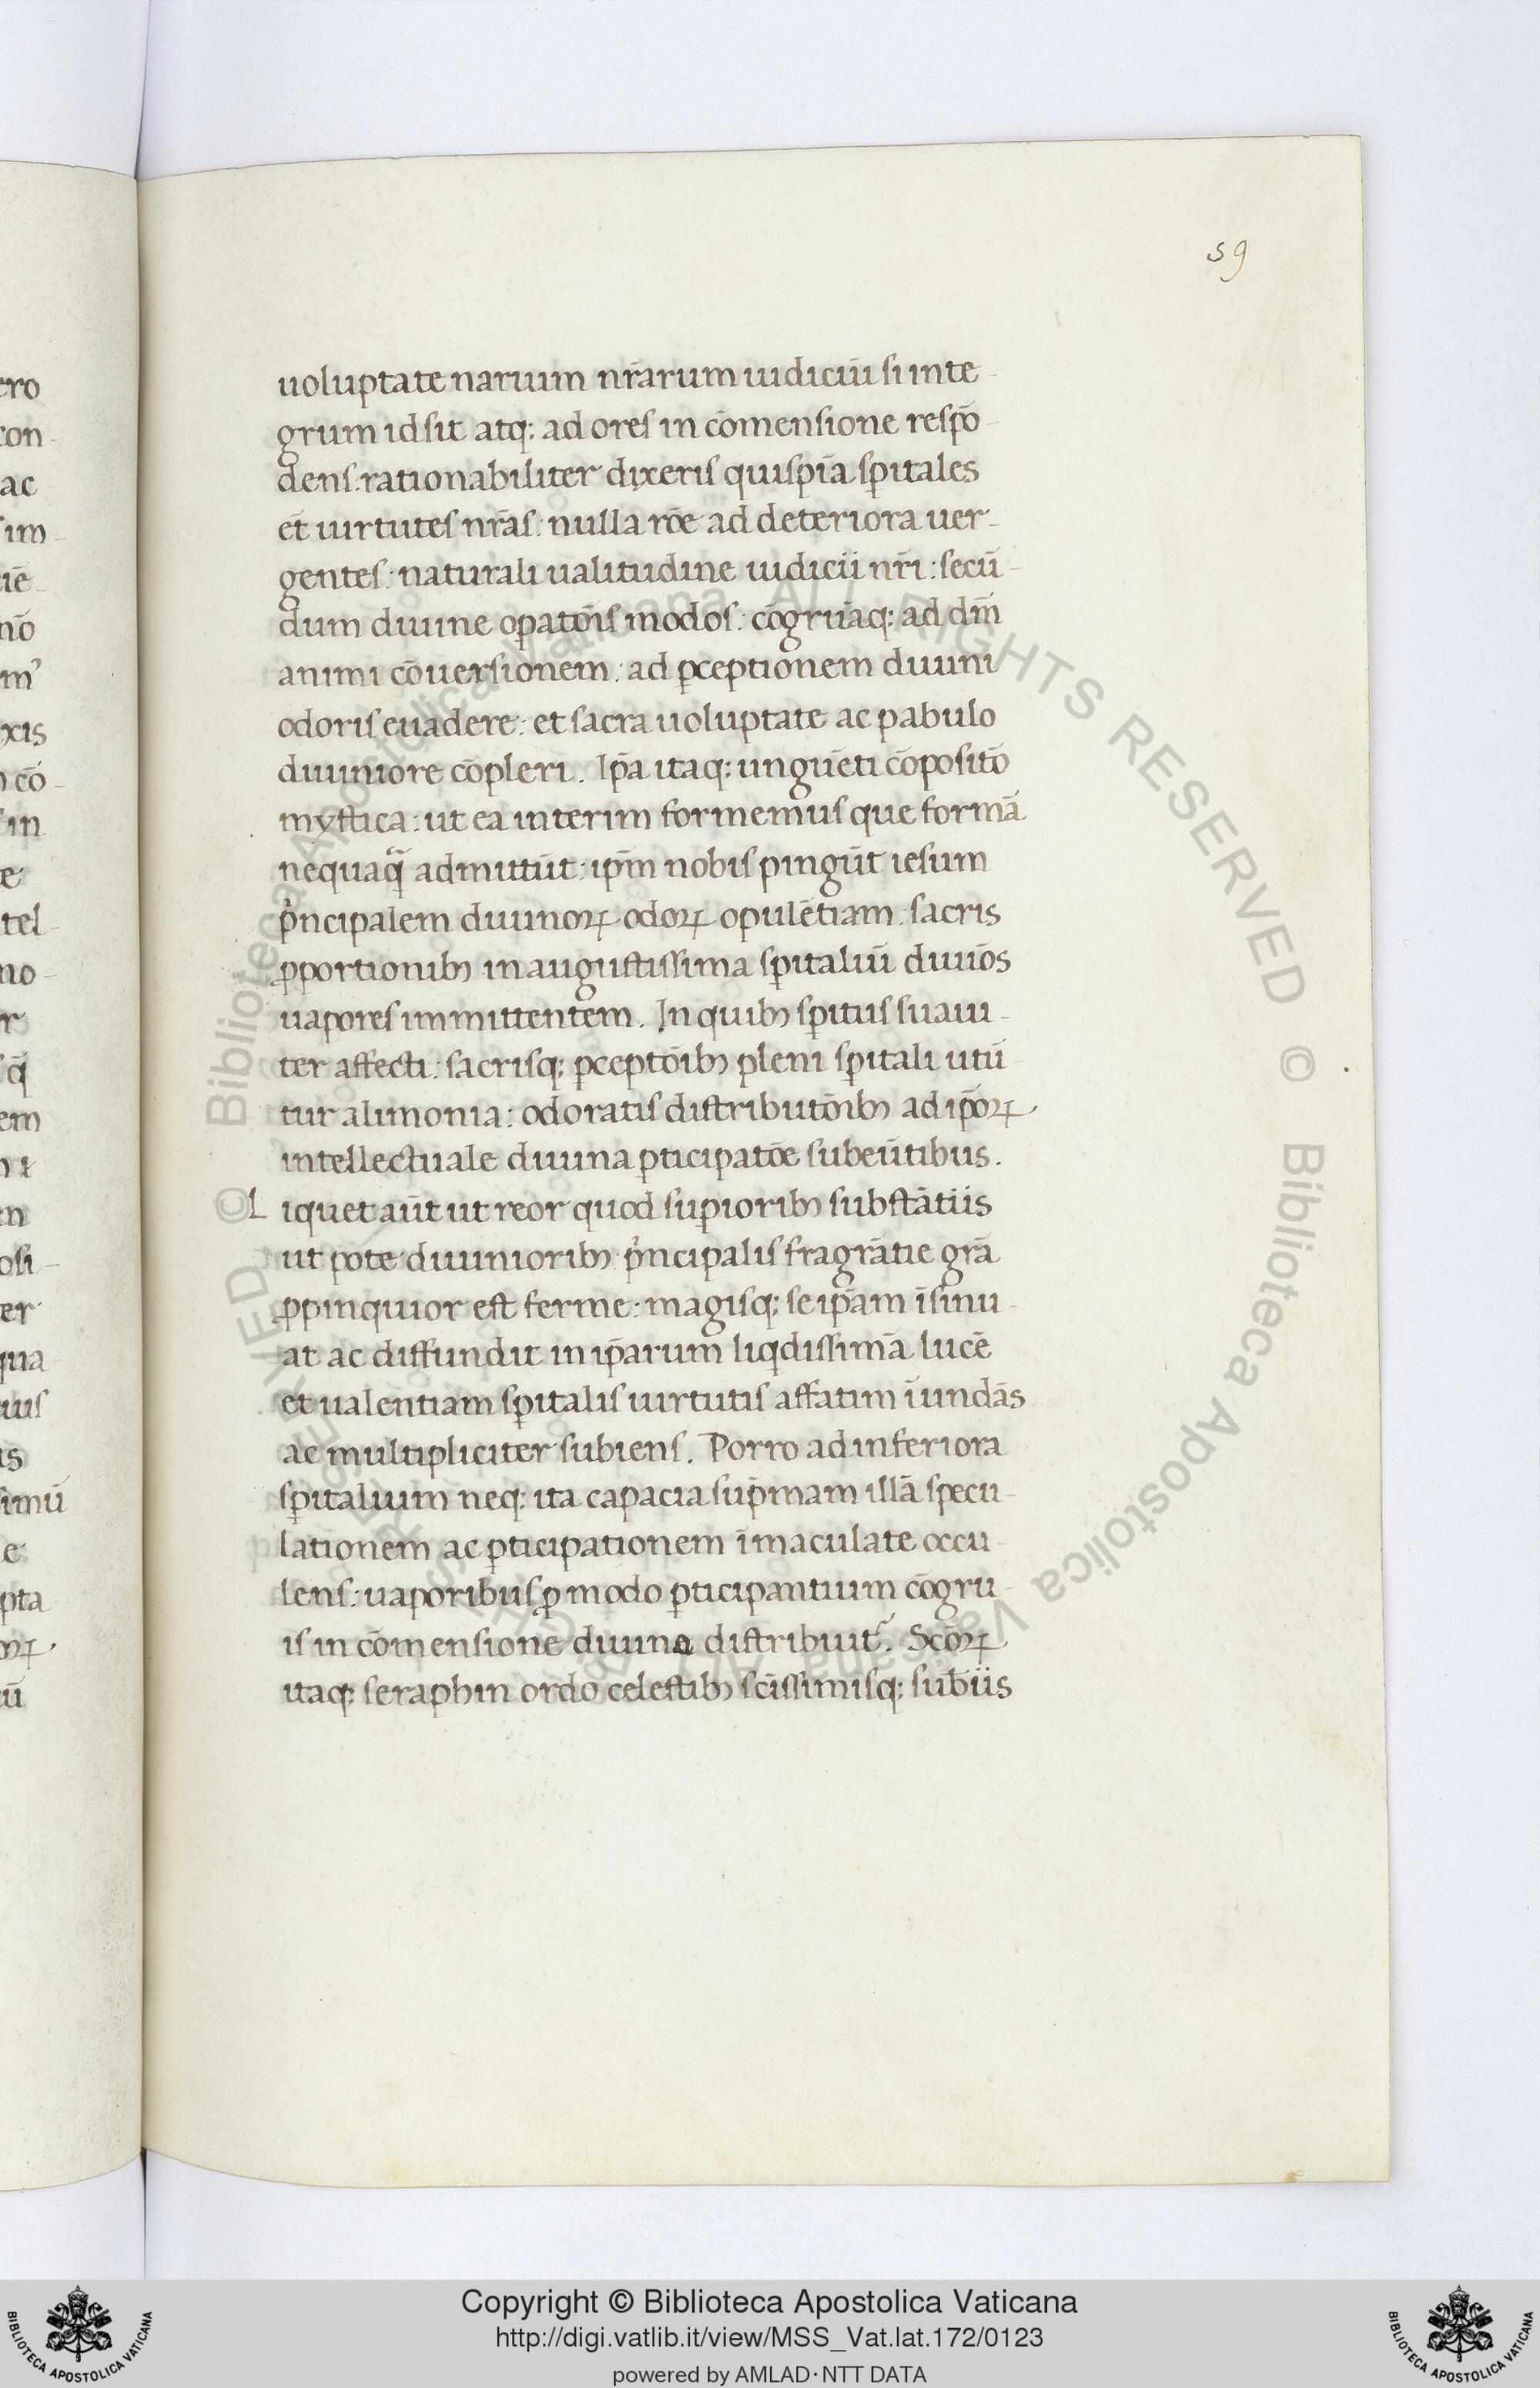 59
uoluptate narium nr̄arum iudiciū si inte-
grum id sit atq: ad ores in cōmensione respō-
dens: rationabiliter dixeris quispiā spitales
et uirtutes nr̄as: nulla rōe ad deteriora uer-
gentes: naturali ualitudine iudicii nr̄i: secū-
dum diuine opatōis modos: cōgruāq: ad dm̄
animi cōuersionem: ad pceptionem diuini
odoris euadere: et sacra uoluptate ac pabulo
diuiniore cōpleri. Ip̄a itaq: unguēti cōpositō
mystica: ut ea interim formemus que formā
nequaq̄ admittūt: ip̄m nobis pingūt iesum
pncipalem diuinoꝝ odoꝝ opulētiam: sacris
ꝓportionibȝ in augustissima spitaliū diuiōs
uapores immittentem. In quibȝ spitus suaui-
ter affecti: sacrisq: pceptōibȝ pleni spitali utū-
tur alimonia: odoratis distributōibȝ ad ip̄oꝝ
intellectuale diuina pticipatōe subeūtibus.
Liquet aūt ut reor quod supioribȝ substātiis
ut pote diuinioribȝ pncipalis fragrātie grā
ꝓpinquior est ferme: magisq: se ip̄am īsinu-
at ac diffundit in ip̄arum liqdissimā lucē
et ualentiam spitalis uirtutis affatim īundās
ac multipliciter subiens. Porro ad inferiora
spitalium neq: ita capacia sup̄mam illā specu-
lationem ac pticipationem īmaculate occu-
lens: uaporibus ꝓ modo pticipantium cōgru-
is in cōmensione diuina distribuit. Scōꝝ
itaq: seraphin ordo celestibȝ sc̄issimisq: subiis
ero
con-
ac
sim-
nō
xis
cō-
in
e
tel-
no-
r
em
n
osi-
er
qua
uis
is
simū
e
pta
ū
© Biblioteca Apostolica Vaticana ALL RIGHTS RESERVED © Biblioteca Apostolica Vaticana ALL RIGHTS RESERVED
Copyright © Biblioteca Apostolica Vaticana
http://digi.vatlib.it/view/MSS_Vat.lat.172/0123
powered by AMLAD·NTT DATA
BIBLIOTECA APOSTOLICA VATICANA
BIBLIOTECA APOSTOLICA VATICANA